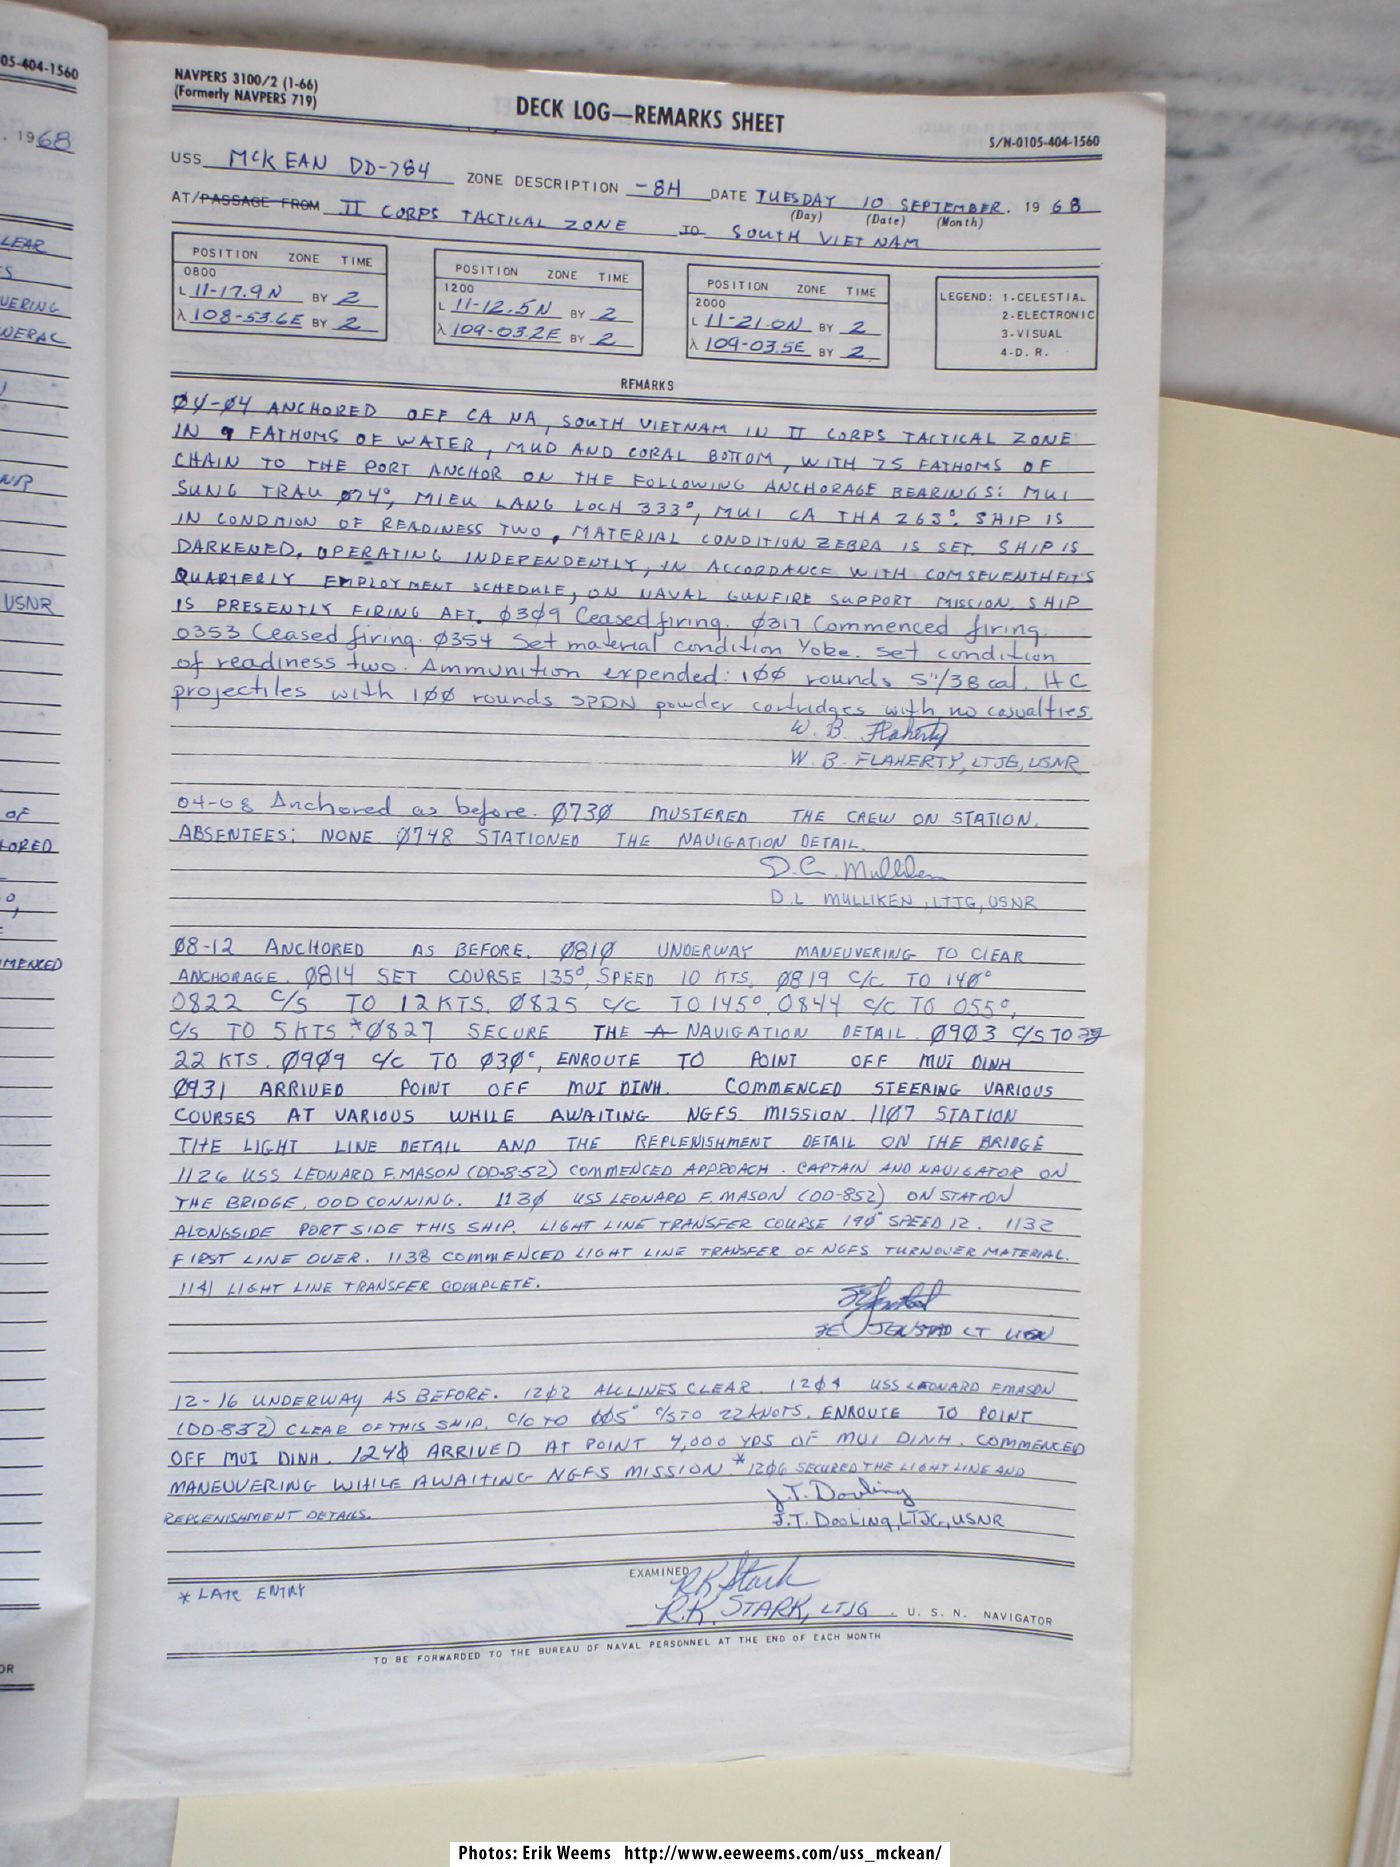 05-404-1560
. 1968
LEAR
UERING
OF
LORED
MMENCED
USNR
NAVPERS 3100/2 (1-66)
(Formerly NAVPERS 719)
DECK LOG—REMARKS SHEET
S/N-0105-404-1560
USS McKEAN DD-784 ZONE DESCRIPTION -8H DATE TUESDAY 10 SEPTEMBER. 1968
(Day) (Date) (Month)
AT/PASSAGE FROM II CORPS TACTICAL ZONE TO SOUTH VIET NAM
POSITION ZONE TIME
0800
L 11-17.9N BY 2
λ 108-53.6E BY 2
POSITION ZONE TIME
1200
L 11-12.5N BY 2
λ 109-03.2E BY 2
POSITION ZONE TIME
2000
L 11-21.0N BY 2
λ 109-03.5E BY 2
LEGEND: 1-CELESTIAL
2-ELECTRONIC
3-VISUAL
4-D. R.
REMARKS
ØØ-Ø4 ANCHORED OFF CA NA, SOUTH VIETNAM IN II CORPS TACTICAL ZONE
IN 9 FATHOMS OF WATER, MUD AND CORAL BOTTOM, WITH 75 FATHOMS OF
CHAIN TO THE PORT ANCHOR ON THE FOLLOWING ANCHORAGE BEARINGS: MUI
SUNG TRAU Ø74°, MIEU LANG LOCH 333°, MUI CA THA 263°. SHIP IS
IN CONDITION OF READINESS TWO, MATERIAL CONDITION ZEBRA IS SET. SHIP IS
DARKENED. OPERATING INDEPENDENTLY, IN ACCORDANCE WITH COMSEVENTHFLT'S
QUARTERLY EMPLOYMENT SCHEDULE, ON NAVAL GUNFIRE SUPPORT MISSION. SHIP
IS PRESENTLY FIRING AFT. Ø3Ø9 Ceased firing. Ø317 Commenced firing.
0353 Ceased firing. Ø354 Set material condition Yoke. Set condition
of readiness two. Ammunition expended: 1ØØ rounds 5"/38 cal. HC
projectiles with 1ØØ rounds SPDN powder cartridges with no casualties.
W. B. Flaherty
W. B. FLAHERTY, LTJG, USNR
04-08 Anchored as before. Ø73Ø MUSTERED THE CREW ON STATION.
ABSENTEES: NONE. Ø748 STATIONED THE NAVIGATION DETAIL.
D. L. Mulliken
D. L MULLIKEN, LTJG, USNR
Ø8-12 ANCHORED AS BEFORE. Ø81Ø UNDERWAY MANEUVERING TO CLEAR
ANCHORAGE. Ø814 SET COURSE 135°, SPEED 10 KTS. Ø819 C/C TO 14Ø°
0822 C/S TO 12 KTS. Ø825 C/C TO 145°. 0844 C/C TO 055°,
C/S TO 5 KTS *Ø827 SECURE THE A NAVIGATION DETAIL. Ø9Ø3 C/S TO
22 KTS. Ø9Ø9 C/C TO Ø3Ø°, ENROUTE TO POINT OFF MUI DINH
Ø931 ARRIVED POINT OFF MUI DINH. COMMENCED STEERING VARIOUS
COURSES AT VARIOUS WHILE AWAITING NGFS MISSION. 11Ø7 STATION
THE LIGHT LINE DETAIL AND THE REPLENISHMENT DETAIL ON THE BRIDGE
1126 USS LEONARD F. MASON (DD-852) COMMENCED APPROACH. CAPTAIN AND NAVIGATOR ON
THE BRIDGE, OOD CONNING. 113Ø USS LEONARD F. MASON (DD-852) ON STATION
ALONGSIDE PORT SIDE THIS SHIP. LIGHT LINE TRANSFER COURSE 19Ø° SPEED 12. 1132
FIRST LINE OVER. 1138 COMMENCED LIGHT LINE TRANSFER OF NGFS TURNOVER MATERIAL.
1141 LIGHT LINE TRANSFER COMPLETE.
JENSTAD LT USN
12-16 UNDERWAY AS BEFORE. 12Ø2 ALL LINES CLEAR. 12Ø4 USS LEONARD F MASON
(DD-852) CLEAR OF THIS SHIP. C/C TO ØØ5° C/S TO 22 KNOTS. ENROUTE TO POINT
OFF MUI DINH. 124Ø ARRIVED AT POINT 4,000 YDS OF MUI DINH. COMMENCED
MANEUVERING WHILE AWAITING NGFS MISSION. *12Ø6 SECURED THE LIGHT LINE AND
REPLENISHMENT DETAILS.
J.T. Dooling
J.T. DOOLING, LTJG, USNR
* LATE ENTRY
EXAMINED
RK Stark
R.K. STARK, LTJG . U. S. N. NAVIGATOR
TO BE FORWARDED TO THE BUREAU OF NAVAL PERSONNEL AT THE END OF EACH MONTH
Photos: Erik Weems http://www.eeweems.com/uss_mckean/